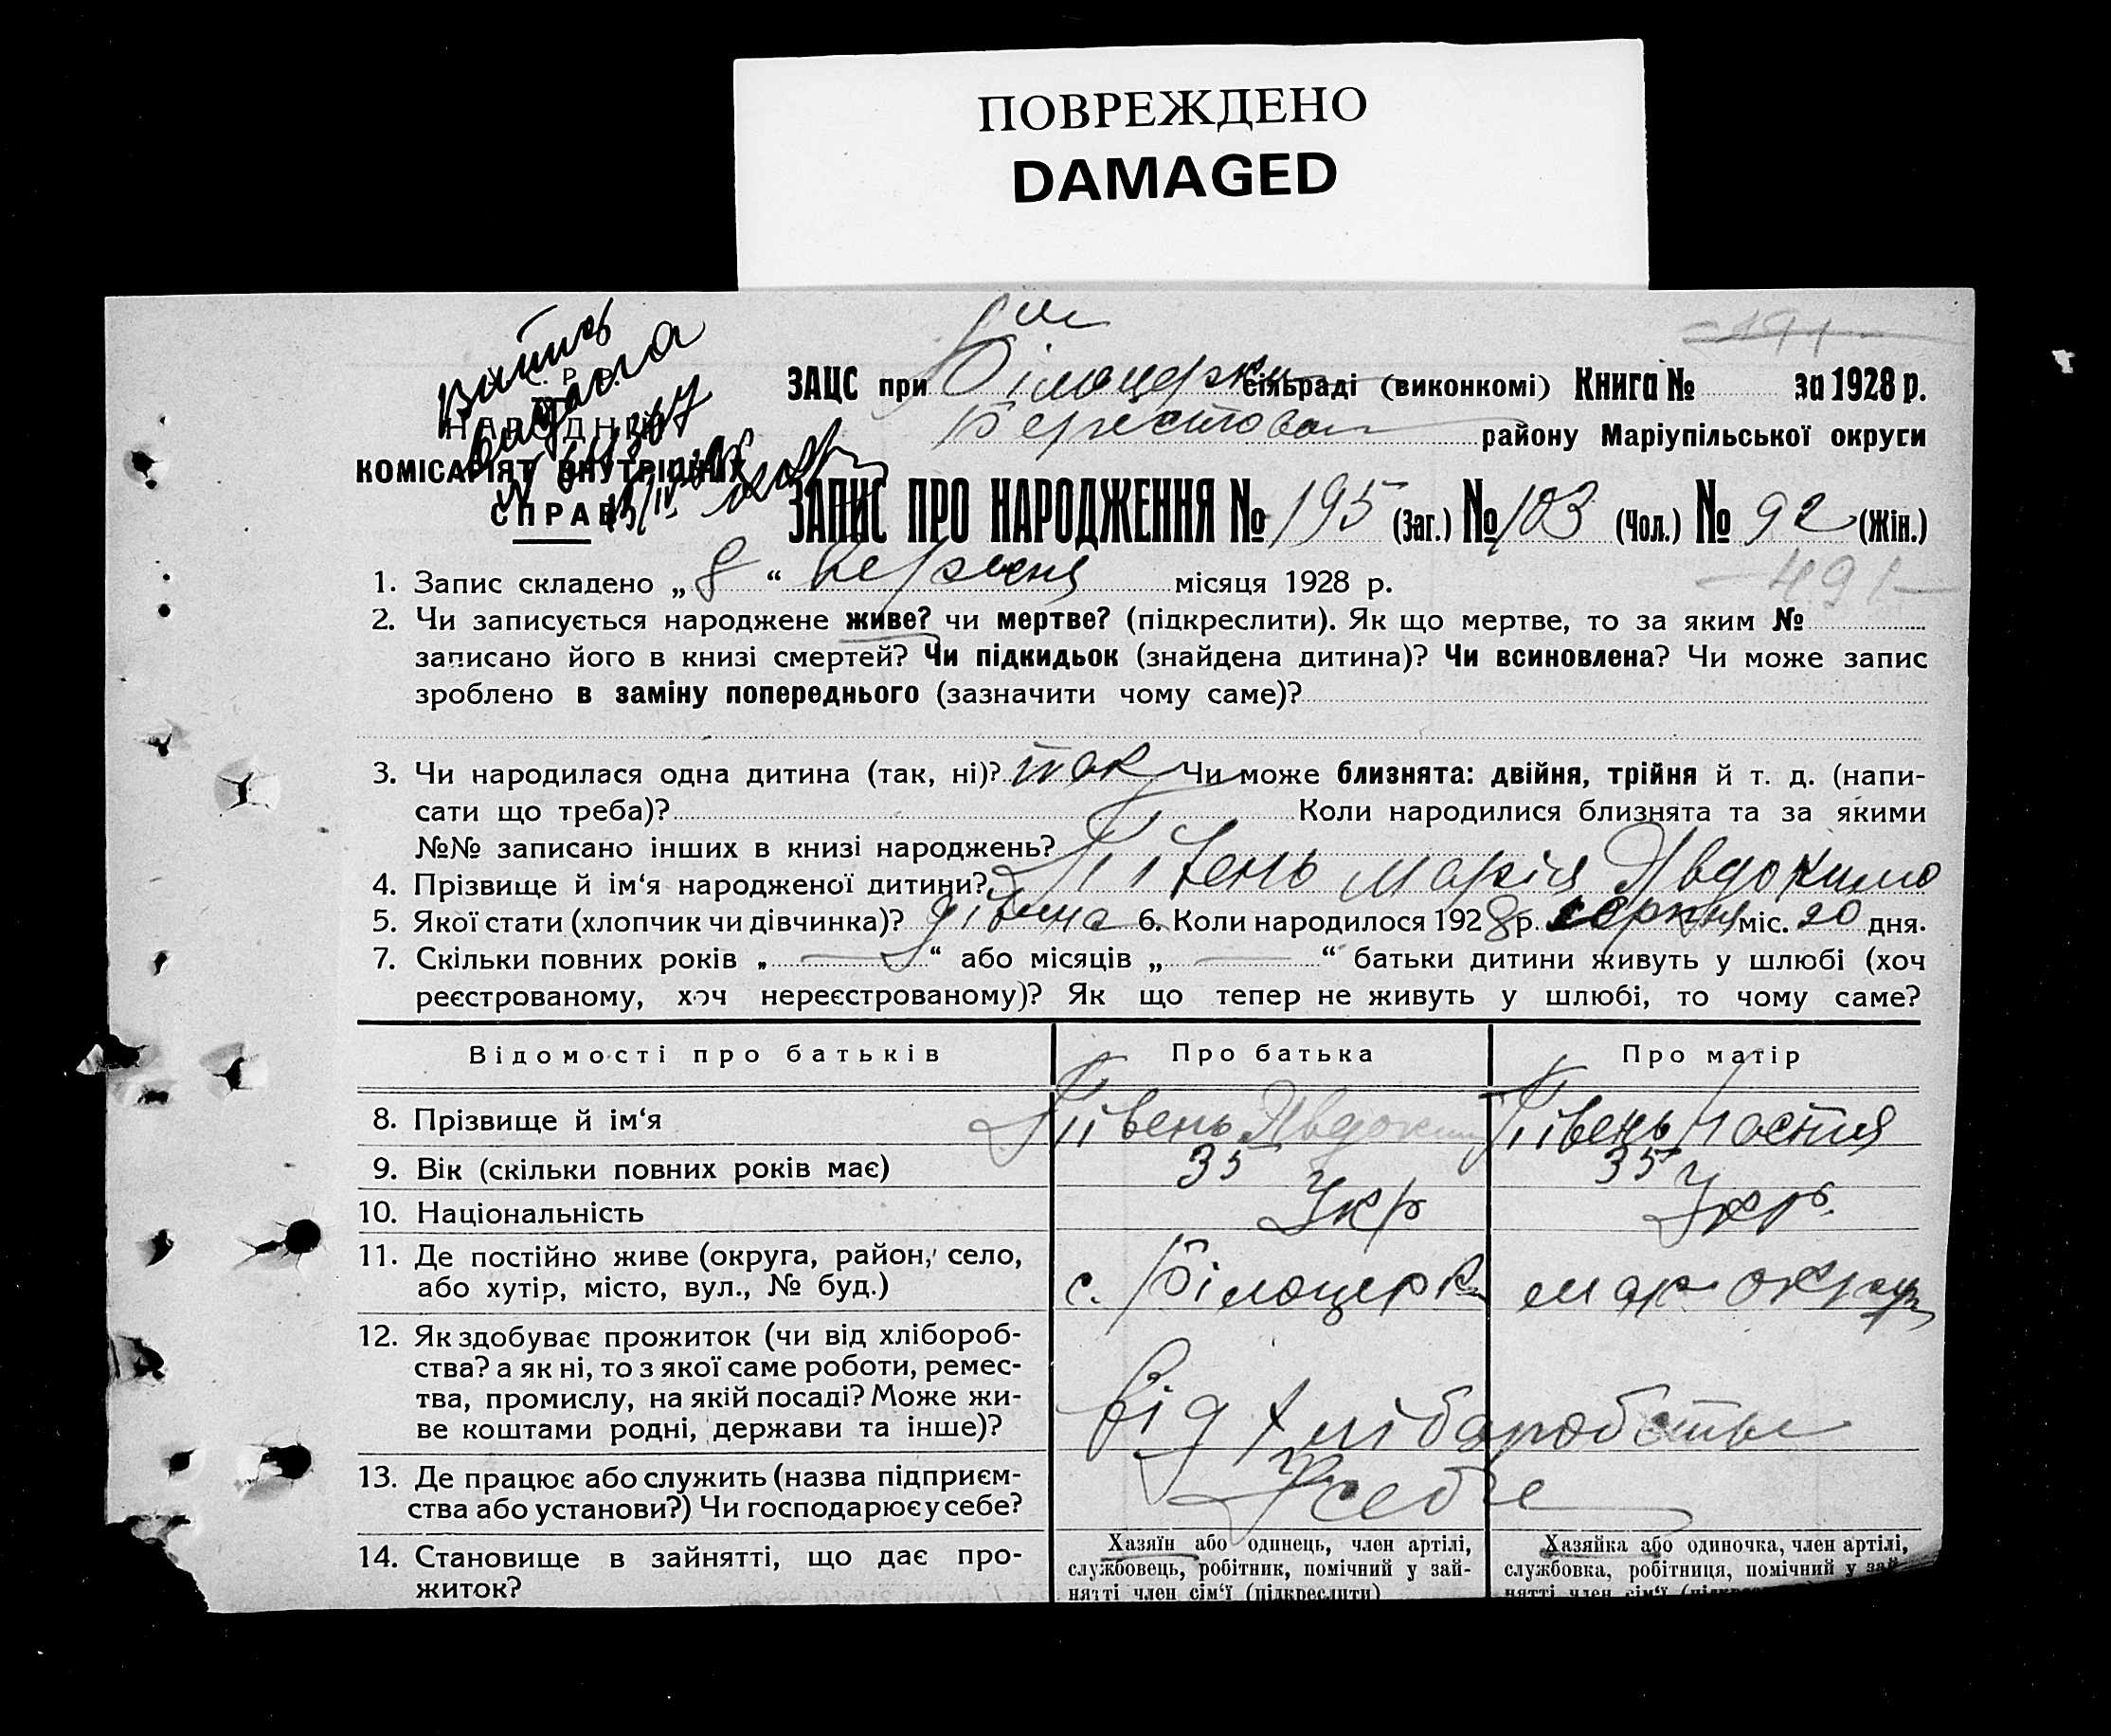 ПОВРЕЖДЕНО
DAMAGED
Витяг
видана
У. С. Р. Р.
НАРОДНИЙ
КОМІСАРІЯТ ВНУТРІШНІХ
СПРАВ
ЗАЦС при Білоцерків сільраді (виконкомі) Книга № за 1928 р.
Берестова району Маріупільської округи
ЗАПИС ПРО НАРОДЖЕННЯ № 195 (Заг.) № 103 (Чол.) № 92 (Жін.)
491
1. Запис складено „ 8 “ Вересня місяця 1928 р.
2. Чи записується народжене живе? чи мертве? (підкреслити). Як що мертве, то за яким №
записано його в книзі смертей? Чи підкидьок (знайдена дитина)? Чи всиновлена? Чи може запис
зроблено в заміну попереднього (зазначити чому саме)?
3. Чи народилася одна дитина (так, ні)? так Чи може близнята: двійня, трійня й т. д. (напи-
сати що треба)? Коли народилися близнята та за якими
№№ записано інших в книзі народжень?
4. Прізвище й ім‘я народженої дитини? Півень Марія Явдокимо
5. Якої стати (хлопчик чи дівчинка)? дівчина 6. Коли народилося 1928 р. серпня міс. 20 дня.
7. Скільки повних років „ — “ або місяців „ — “ батьки дитини живуть у шлюбі (хоч
реєстрованому, хоч нереєстрованому)? Як що тепер не живуть у шлюбі, то чому саме?
Відомості про батьків Про батька Про матір
8. Прізвище й ім‘я Півень Явдоким Півень Настя
9. Вік (скільки повних років має) 35 35
10. Національність Укр Укр.
11. Де постійно живе (округа, район, село,
або хутір, місто, вул., № буд.) с. Білоцерк. мар округ
12. Як здобуває прожиток (чи від хлібороб-
ства? а як ні, то з якої саме роботи, ремес-
тва, промислу, на якій посаді? Може жи-
ве коштами родні, держави та інше)? від хліборобства
13. Де працює або служить (назва підприєм-
ства або установи?) Чи господарює у себе? У себе
14. Становище в зайнятті, що дає про-
житок?
Хазяїн або одинець, член артілі,
службовець, робітник, помічний у зай-
нятті член сім‘ї (підкреслити)
Хазяйка або одиночка, член артілі,
службовка, робітниця, помічний у зай-
нятті член сім‘ї